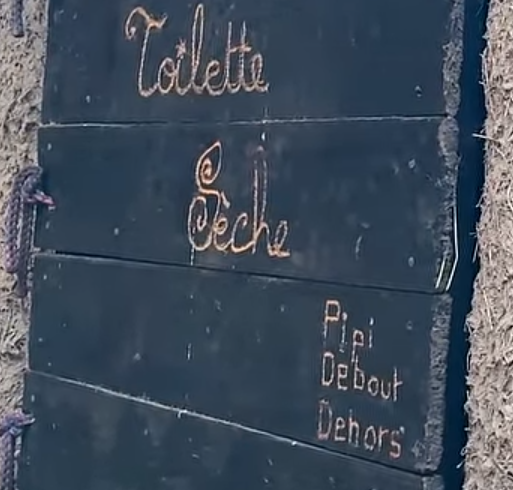 Toilette
Sèche
Pipi
Debout
Dehors